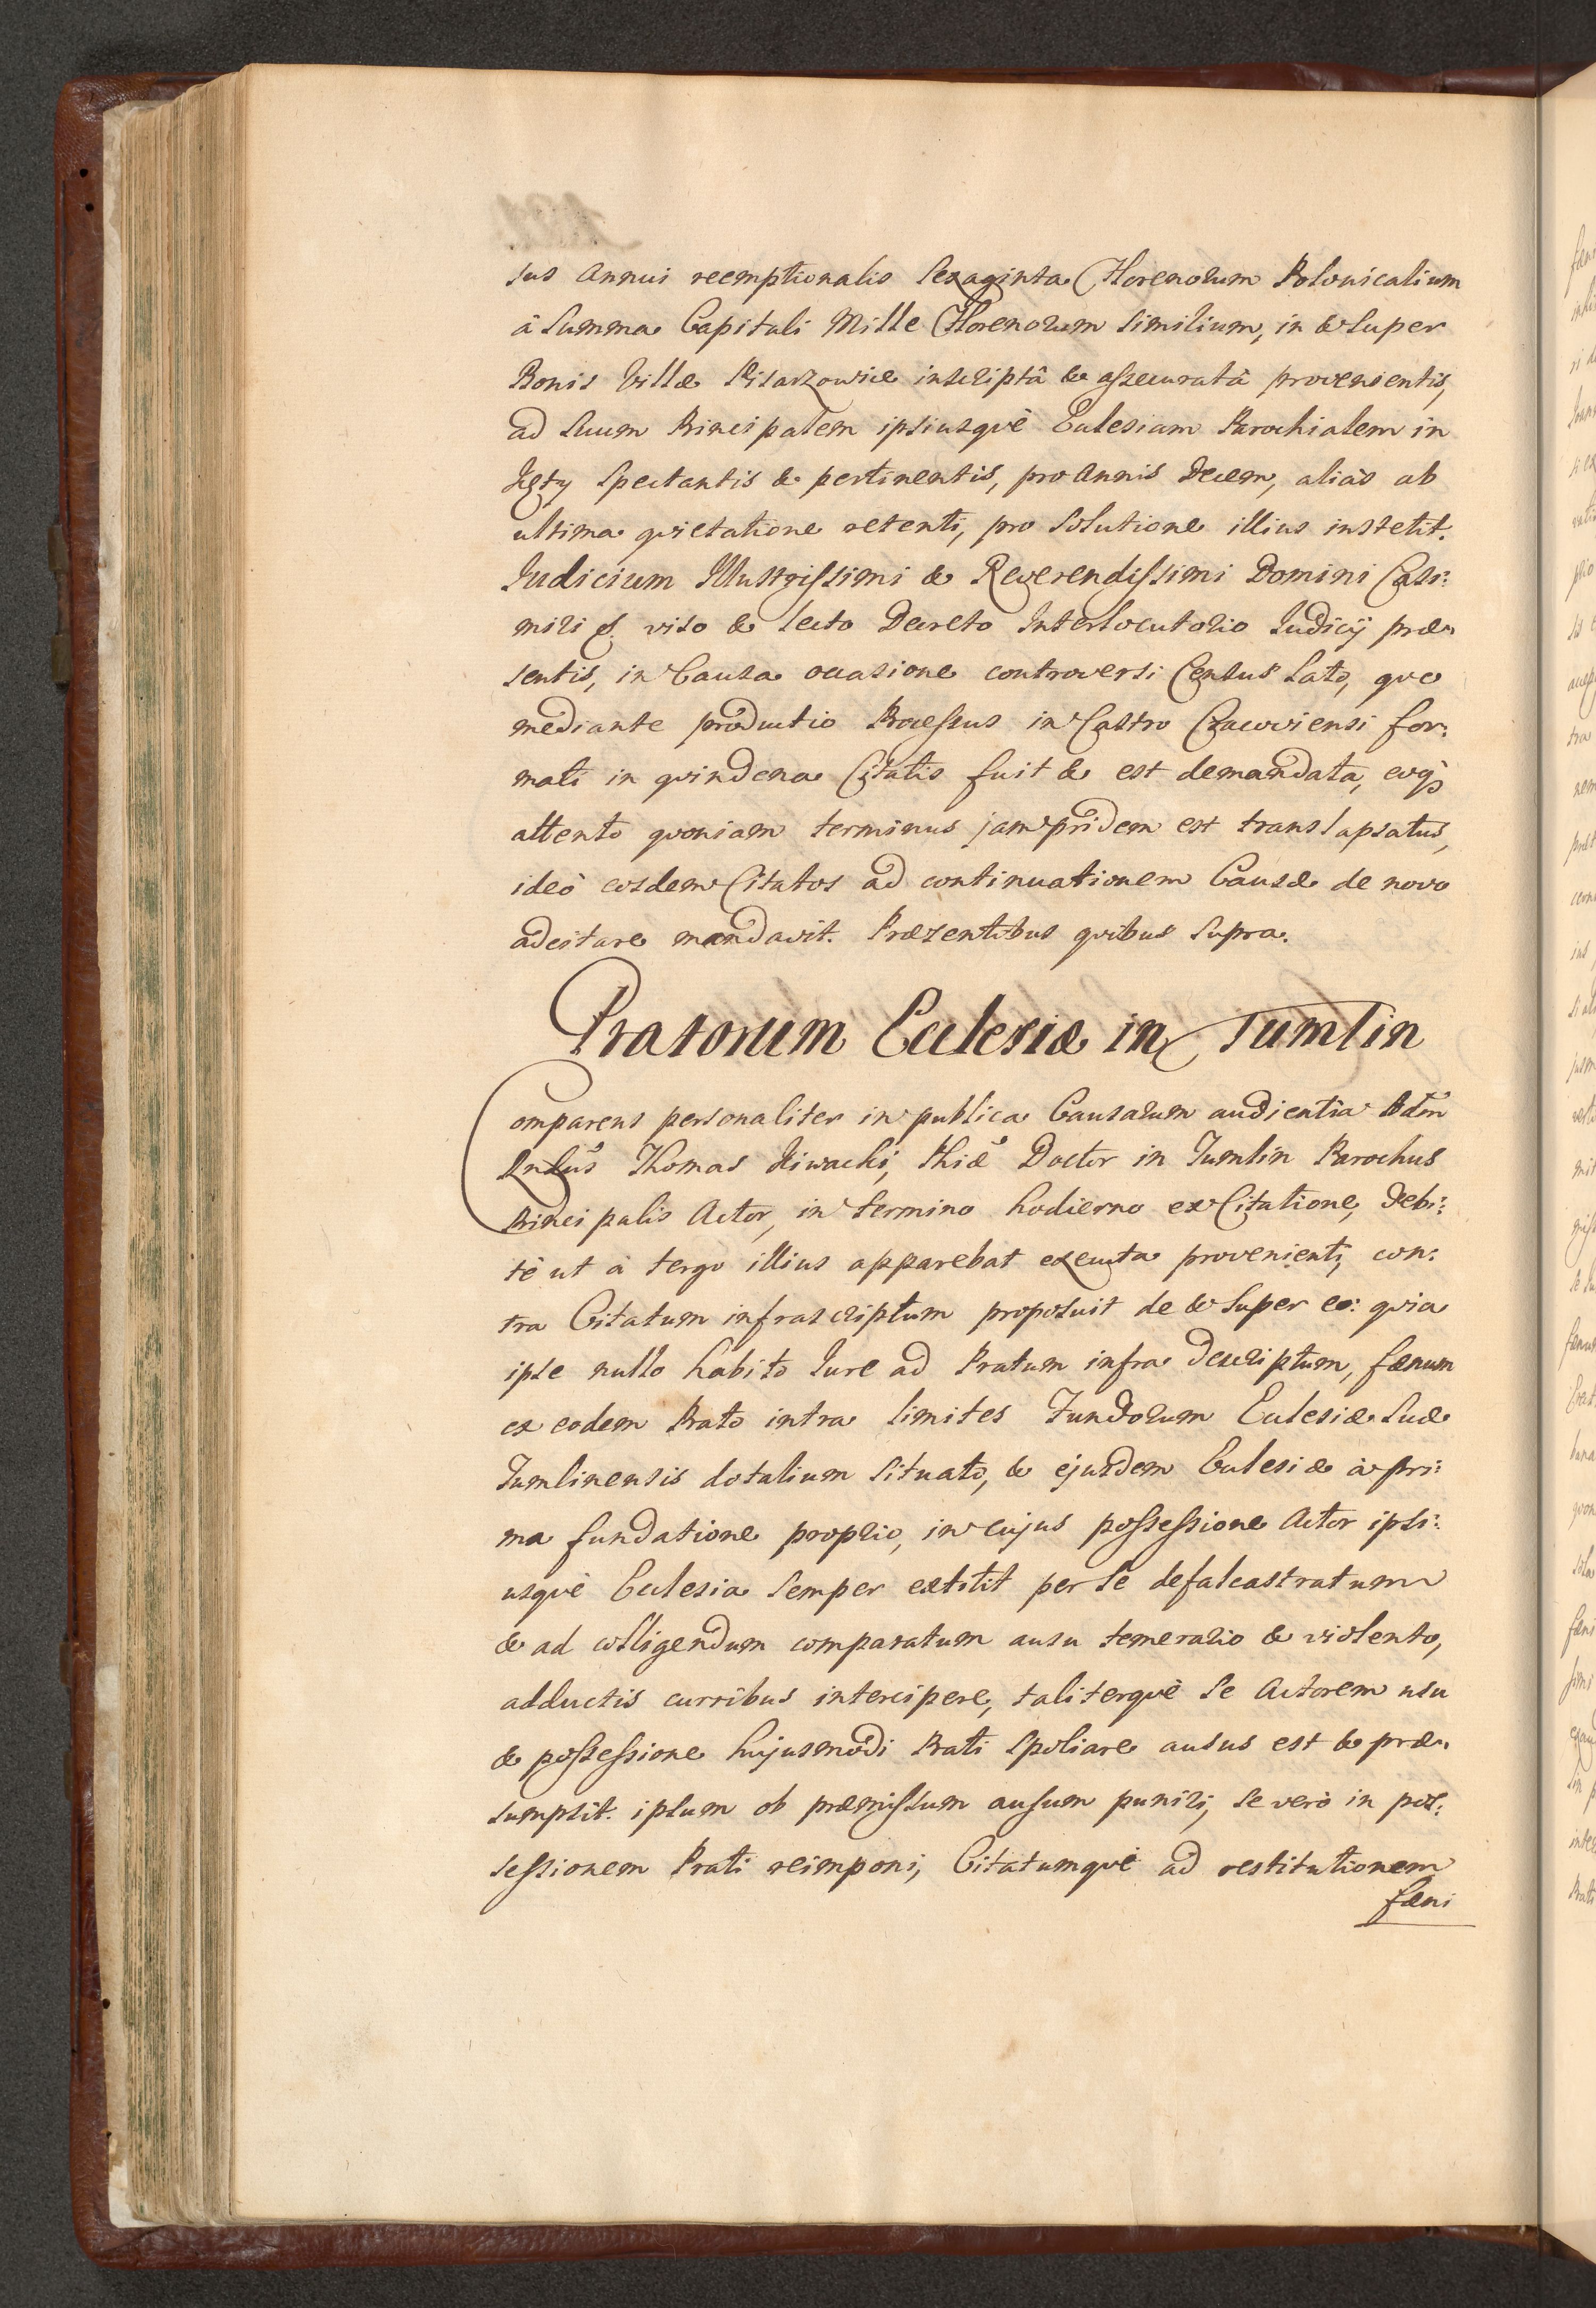 sus Annui reemptionalis Sexaginta Florenorum Polonicalium
â Summa Capitali Mille Florenorum Similium, in & Super
Bonis Villæ Pisarzowice inscriptâ & assecuratâ provenientis,
ad Suum Principalem ipsiusquè Ecclesiam Parochialem in
Kęty Spectantis & pertinentis, pro Annis Decem, aliàs ab
ultima quietatione retenti, pro Solutione illius institit.
Iudicium Illustrissimi & Reverendissimi Domini Casi:
miri &. viso & lecto Decreto Interlocutorio Iudicij præ„
sentis, in Causa occasione controversi Census Lato, quo
mediante productio Processus in Castro Cracoviensi for:
mati in quindena Citatis fuit & est demandata, eoq́
attento quoniam terminus jam pridem est translapsatus,
ideò eosdem Citatos ad continuationem Causæ de novo
adcitare mandavit. Præsentibus quibus Supra.
Pratorum Ecclesiæ in Tumlin
Comparens personaliter in publica Causarum audientia Adm̃
Rñdus Thomas Siwacki, Phiæ Doctor in Tumlin Parochus
Principalis Actor, in termino hodierno ex Citatione, debi:
tè ut à tergo illius apparebat executa provenienti, con:
tra Citatum infrascriptum proposuit de & Super eo: quia
ipse nullo habito Iure ad Pratum infra descriptum, fœnum
ex eodem Prato intra limites Fundorum Ecclesiæ Suæ
Tumlinensis dotalium Situato, & ejusdem Ecclesiæ à pri:
ma fundatione proprio, in cujus possessione Actor ipsi:
usquè Ecclesia Semper extitit per Se defalcastratum
& ad colligendum comparatum ausu temerario & violento,
adductis curribus intercipere, taliterquè Se Actorem usu
& possessione hujusmodi Prati Spoliare ausus est & præ„
sumpsit. ipsum ob præmissum ausum puniri, Se verò in pos:
sessionem Prati reimponi, Citatumquè ad restitutionem
fœni